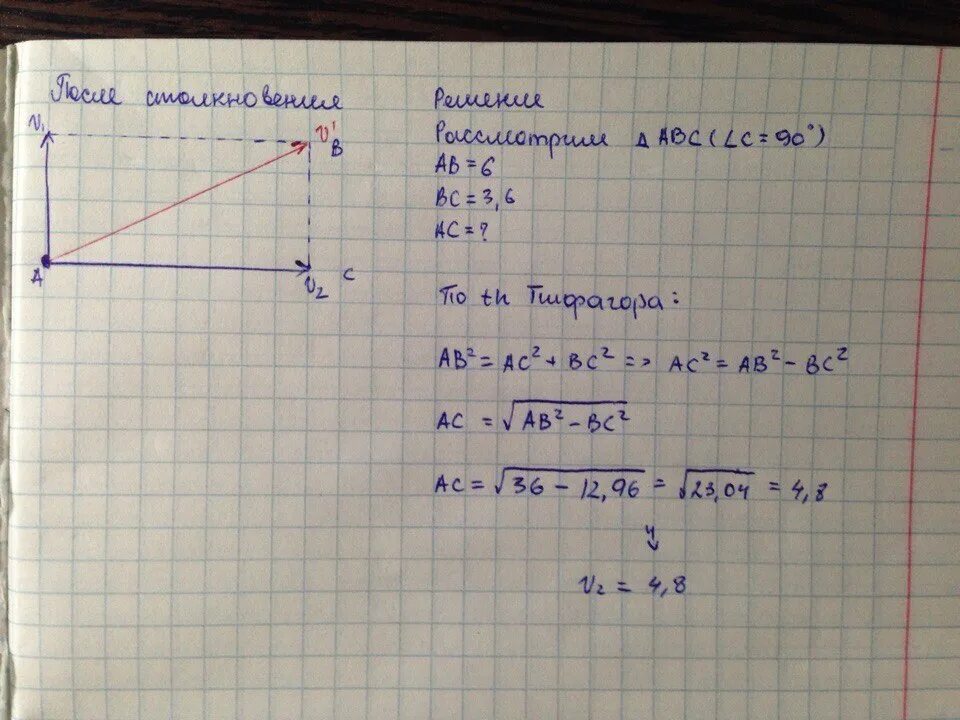 После столкновения
V₁
V'
B
A
V₂
C
Решение
Рассмотрим △ ABC (∠C = 90°)
AB = 6
BC = 3,6
AC = ?
По th Пифагора:
AB² = AC² + BC² => AC² = AB² - BC²
AC = √AB² - BC²
AC = √36 - 12,96 = √23,04 = 4,8
V₂ = 4,8